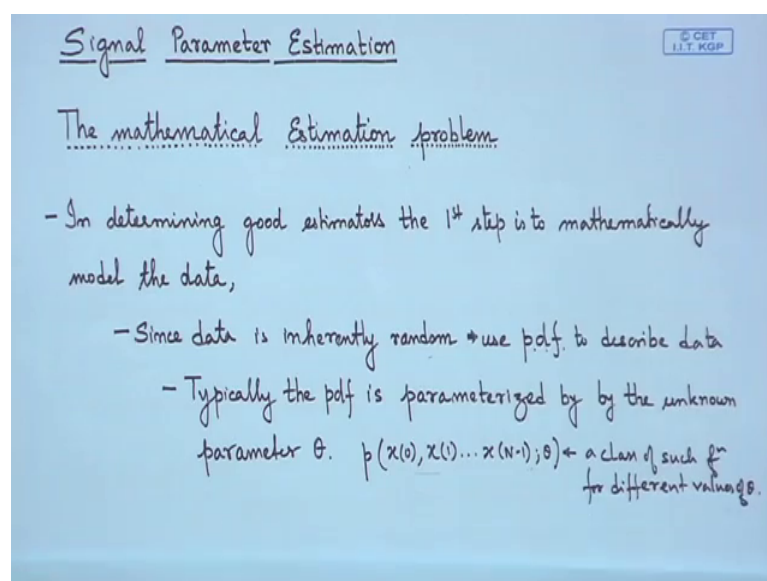 Signal Parameter Estimation
© CET
I.I.T. KGP
The mathematical Estimation problem
- In determining good estimators the 1st step is to mathematically
model the data,
- Since data is inherently random → use p.d.f. to describe data
- Typically the pdf is parameterized by by the unknown
parameter θ. p(x(0), x(1)... x(N-1); θ) ← a class of such fn
for different values of θ.